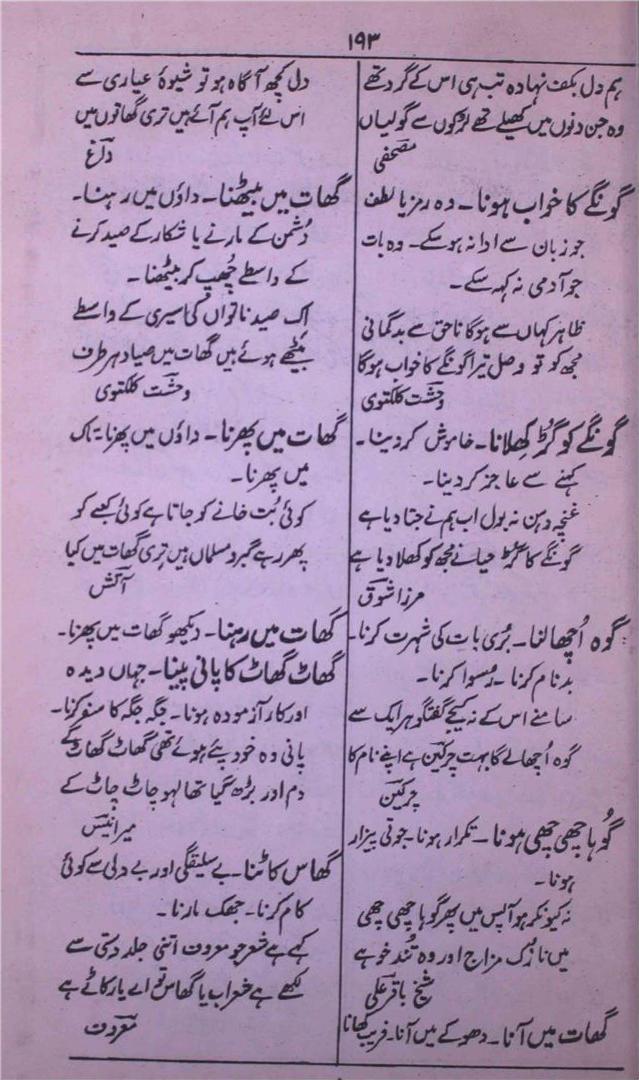 ۱۹۳
ہم دل بکف نہادہ تب ہی اس کے گرد تھے
وہ جن دنوں میں کھیلے تھے لڑکوں سے گولیاں
مصحفی
گونگے کا خواب ہونا۔ وہ رمز یا لطف
جو زبان سے ادا نہ ہو سکے۔ وہ بات
جو آدمی نہ کہہ سکے۔
ظاہر کہاں سے ہوگا ناحق سے بدگمانی
مجھ کو تو وصل تیرا گونگے کا خواب ہوگا
وحشت کلکتوی
گونگے کو گڑ کھلانا۔ خاموش کر دینا۔
کہنے سے عاجز کر دینا۔
غنچہ دہن نہ بول اب ہم نے جتا دیا ہے
گونگے کا گڑ حیا نے مجھ کو کھلا دیا ہے
مرزا شوق
گوہ اُچھالنا۔ بُری بات کی شہرت کرنا۔
بدنام کرنا۔ رُسوا کرنا۔
سامنے اس کے نہ کیجے گفتگو ہر ایک سے
گوہ اُچھالے گا بہت چرکین ہے اپنے نام کا
چرکین
گُوہا چھی چھی ہونا۔ تکرار ہونا۔ جوتی پیزار
ہونا۔
نہ کیونکر ہو آپس میں پھر گوہا چھی چھی
میں نازک مزاج اور وہ تُند خو ہے
شیخ باقر علی
گھات میں آنا۔ دھوکے میں آنا۔ فریب کھانا
دل کچھ آگاہ ہو تو شیوۂ عیاری سے
اس لئے آپ ہم آئے ہیں تری گھاتوں میں
داغ
گھات میں بیٹھنا۔ داؤں میں رہنا۔
دُشمن کے مارنے یا شکار کے صید کرنے
کے واسطے چُھپ کر بیٹھنا۔
اک صید ناتواں کی اسیری کے واسطے
بیٹھے ہوئے ہیں گھات میں صیاد ہر طرف
وحشت کلکتوی
گھات میں پھرنا۔ داؤں میں پھرنا۔ تاک
میں پھرنا۔
کوئی بُت خانے کو جاتا ہے کوئی کعبے کو
پھر رہے گبر و مسلماں ہیں تِری گھات میں کیا
آتش
گھات میں رہنا۔ دیکھو گھات میں پھرنا۔
گھاٹ گھاٹ کا پانی پینا۔ جہاں دیدہ
اور کار آزمودہ ہونا۔ جگہ جگہ کا سفر کرنا۔
پانی وہ خود پئے ہوئے تھی گھاٹ گھاٹ کے
دم اور بڑھ گیا تھا لہو چاٹ چاٹ کے
میر انیس
گھاس کاٹنا۔ بے سلیقگی اور بے دلی سے کوئی
کام کرنا۔ جھک مارنا۔
کہے ہے شعر جو معروف اتنی جلد دستی سے
لکھے ہے خراب یا گھاس تو اے یار کاٹے ہے
معروف